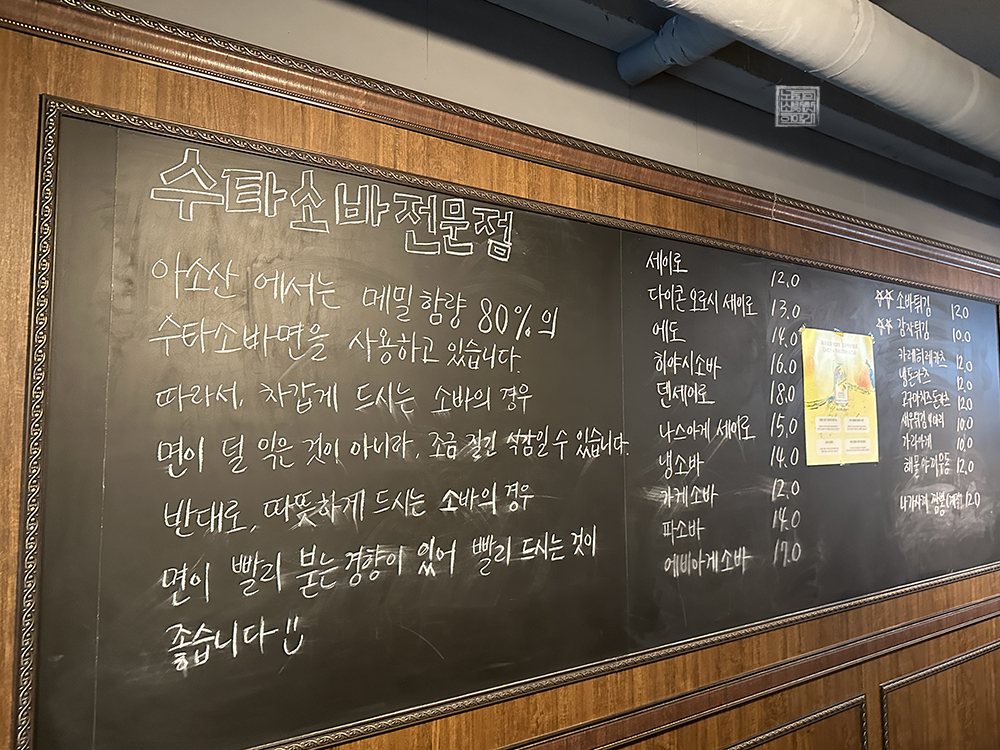 수타소바전문점
아소산 에서는 메밀함량 80%의
수타소바면을 사용하고 있습니다.
따라서, 차갑게 드시는 소바의 경우
면이 덜 익은 것이 아니라, 조금 질긴 식감일 수 있습니다.
반대로, 따뜻하게 드시는 소바의 경우
면이 빨리 붇는 경향이 있어 빨리 드시는 것이
좋습니다!!
세이로 12.0
다이콘 오로시 세이로 13.0
에도 14.0
히야시소바 16.0
덴세이로 18.0
나스아게 세이로 15.0
냉소바 14.0
카케소바 12.0
파소바 14.0
에비아게소바 17.0
소바튀김 12.0
감자튀김 10.0
카레히레카츠 12.0
냉돈카츠 12.0
고구마치즈돈카츠 12.0
새우튀김 10.0
가라아게 10.0
해물 야끼우동 12.0
나가사끼 짬뽕 12.0